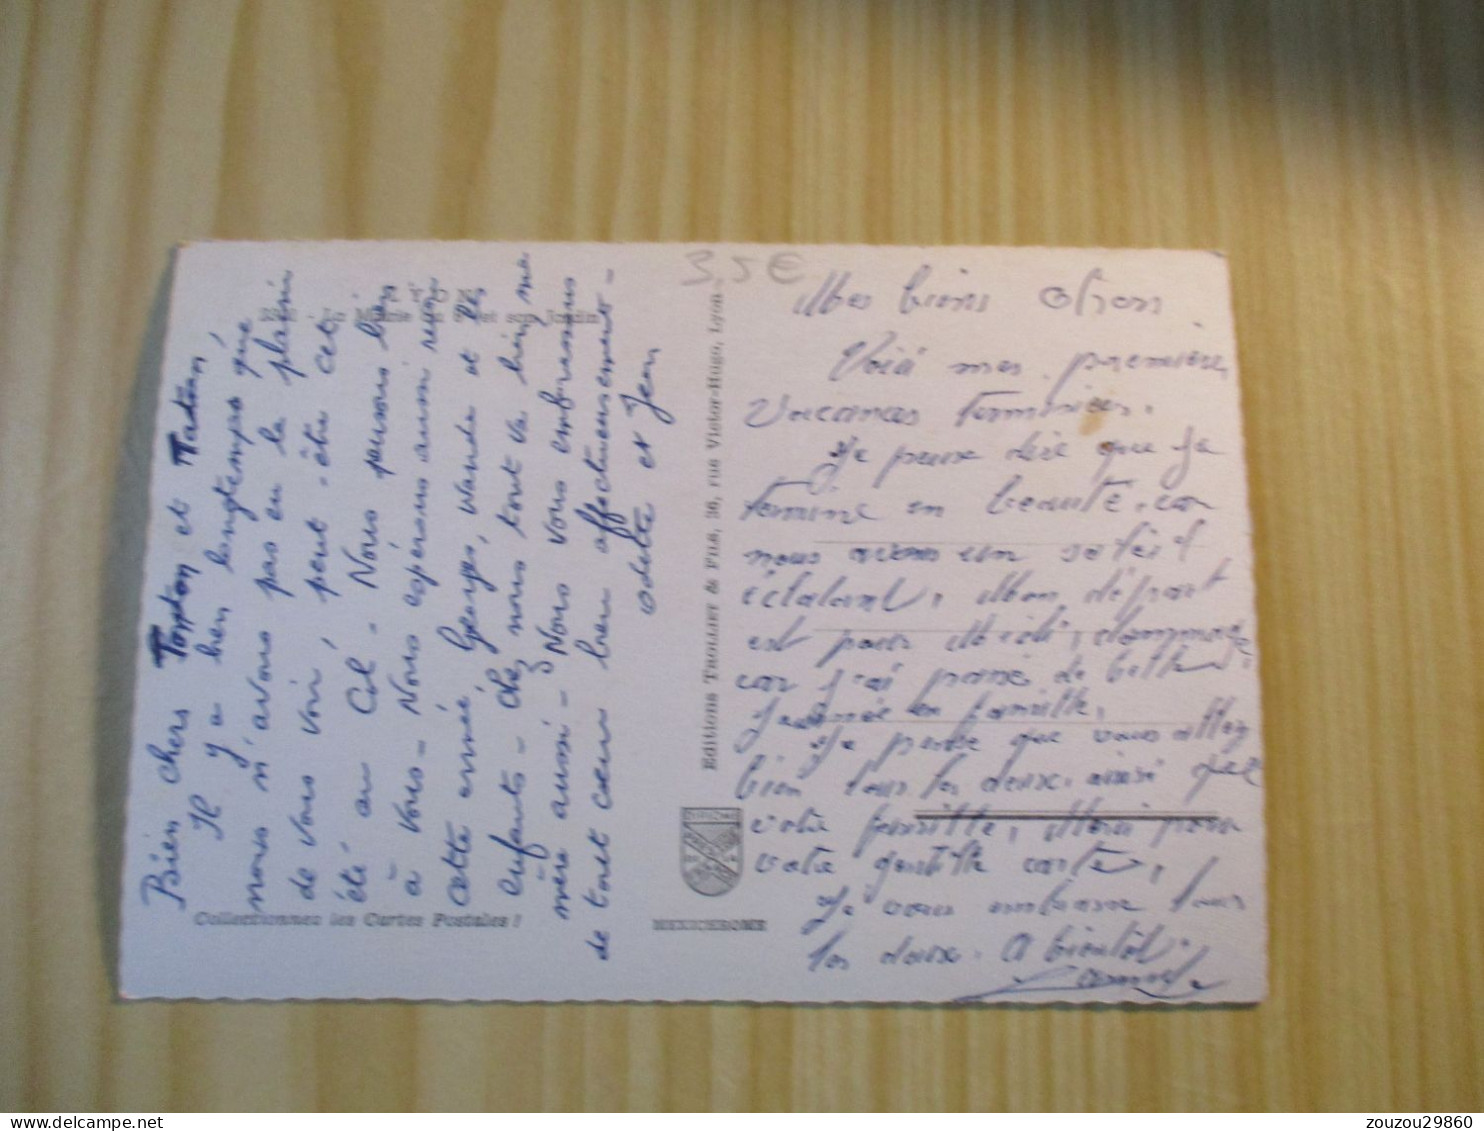 Bien chers Tonton et Tatan,
Il y a bien longtemps que
nous n'avons pas eu le plaisir
de vous voir, peut-être cet
été au Col. Nous pensons bien
à vous - Nous espérons aussi
cette année Georges, Wanda et les
enfants - chez nous tout va bien,
mère aussi - Nous vous embrassons
de tout cœur bien affectueusement -
Odette et Jean
La Mairie et son Jardin
Collectionnez les Cartes Postales !
Editions TROLLIET & FILS, 36, rue Victor-Hugo, Lyon
MEXICHROME
3,5€
Mes biens chers
Voici mes premières
vacances terminées.
Je peux dire que je
termine en beauté, car
nous avons un soleil
éclatant. Mon départ
est pour Midi, dommage
car j'ai passé de belles
journée en famille.
Je pense que vous allez
bien tous les deux, ainsi que
votre famille, Merci pour
votre gentille carte.
Je vous embrasse tous
les deux. A bientôt.
zouzou29860